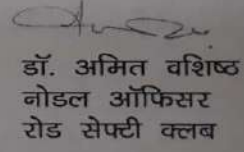 डॉ. अमित वशिष्ठ
नोडल ऑफिसर
रोड सेफ्टी क्लब